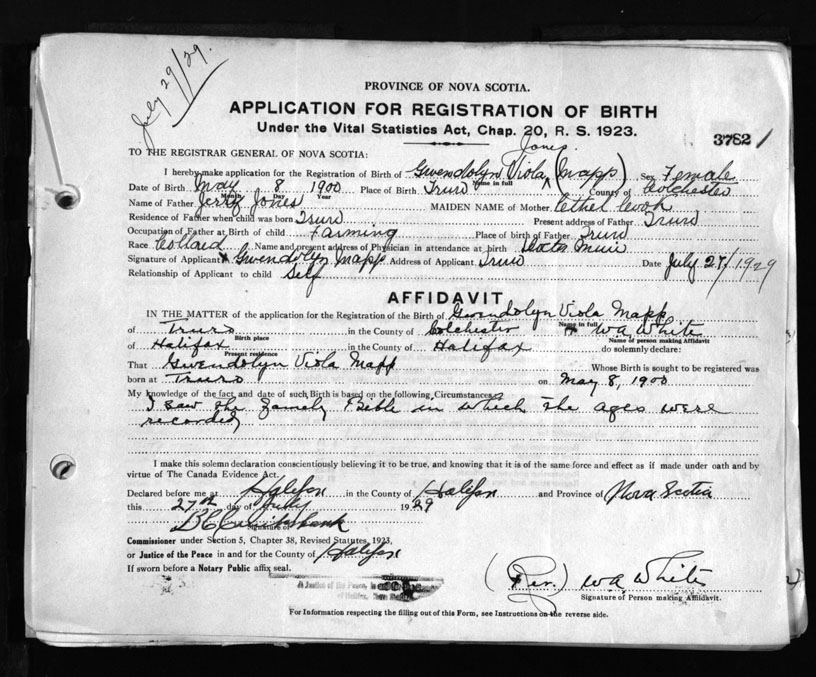 July 29/29.
PROVINCE OF NOVA SCOTIA.
APPLICATION FOR REGISTRATION OF BIRTH
Under the Vital Statistics Act, Chap. 20, R. S. 1923.
3782 /
TO THE REGISTRAR GENERAL OF NOVA SCOTIA:
Jones
I hereby make application for the Registration of Birth of Gwendolyn Viola (Mapp) Sex Female
Name in full
Date of Birth May 8 1900 Place of Birth Truro County of Colchester
Month Day Year
Name of Father Jerry Jones MAIDEN NAME of Mother Ethel Cook
Residence of Father when child was born Truro Present address of Father Truro
Occupation of Father at Birth of child Farming Place of birth of Father Truro
Race Collard Name and present address of Physician in attendance at birth Doctor Muir
Signature of Applicant x Gwendolyn Mapp Address of Applicant Truro Date July 27/1929
Relationship of Applicant to child Self
AFFIDAVIT
IN THE MATTER of the application for the Registration of the Birth of Gwendolyn Viola Mapp
Name in full
of Truro in the County of Colchester I W A White
Birth place Name of person making Affidavit
of Halifax in the County of Halifax do solemnly declare:
Present residence
That Gwendolyn Viola Mapp Whose Birth is sought to be registered was
born at Truro on May 8, 1900
My knowledge of the fact and date of such Birth is based on the following Circumstances
I saw the family Bible in which the ages were
recorded
I make this solemn declaration conscientiously believing it to be true, and knowing that it is of the same force and effect as if made under oath and by
virtue of The Canada Evidence Act.
Declared before me at Halifax in the County of Halifax and Province of Nova Scotia
this 27th day of July 1929
Signature of
Commissioner under Section 5, Chapter 38, Revised Statutes, 1923,
or Justice of the Peace in and for the County of Halifax
If sworn before a Notary Public affix seal.
A Justice of the Peace, in
of Halifax, Nova Scotia
(Rev.) W A White
Signature of Person making Affidavit.
For Information respecting the filling out of this Form, see Instructions on the reverse side.